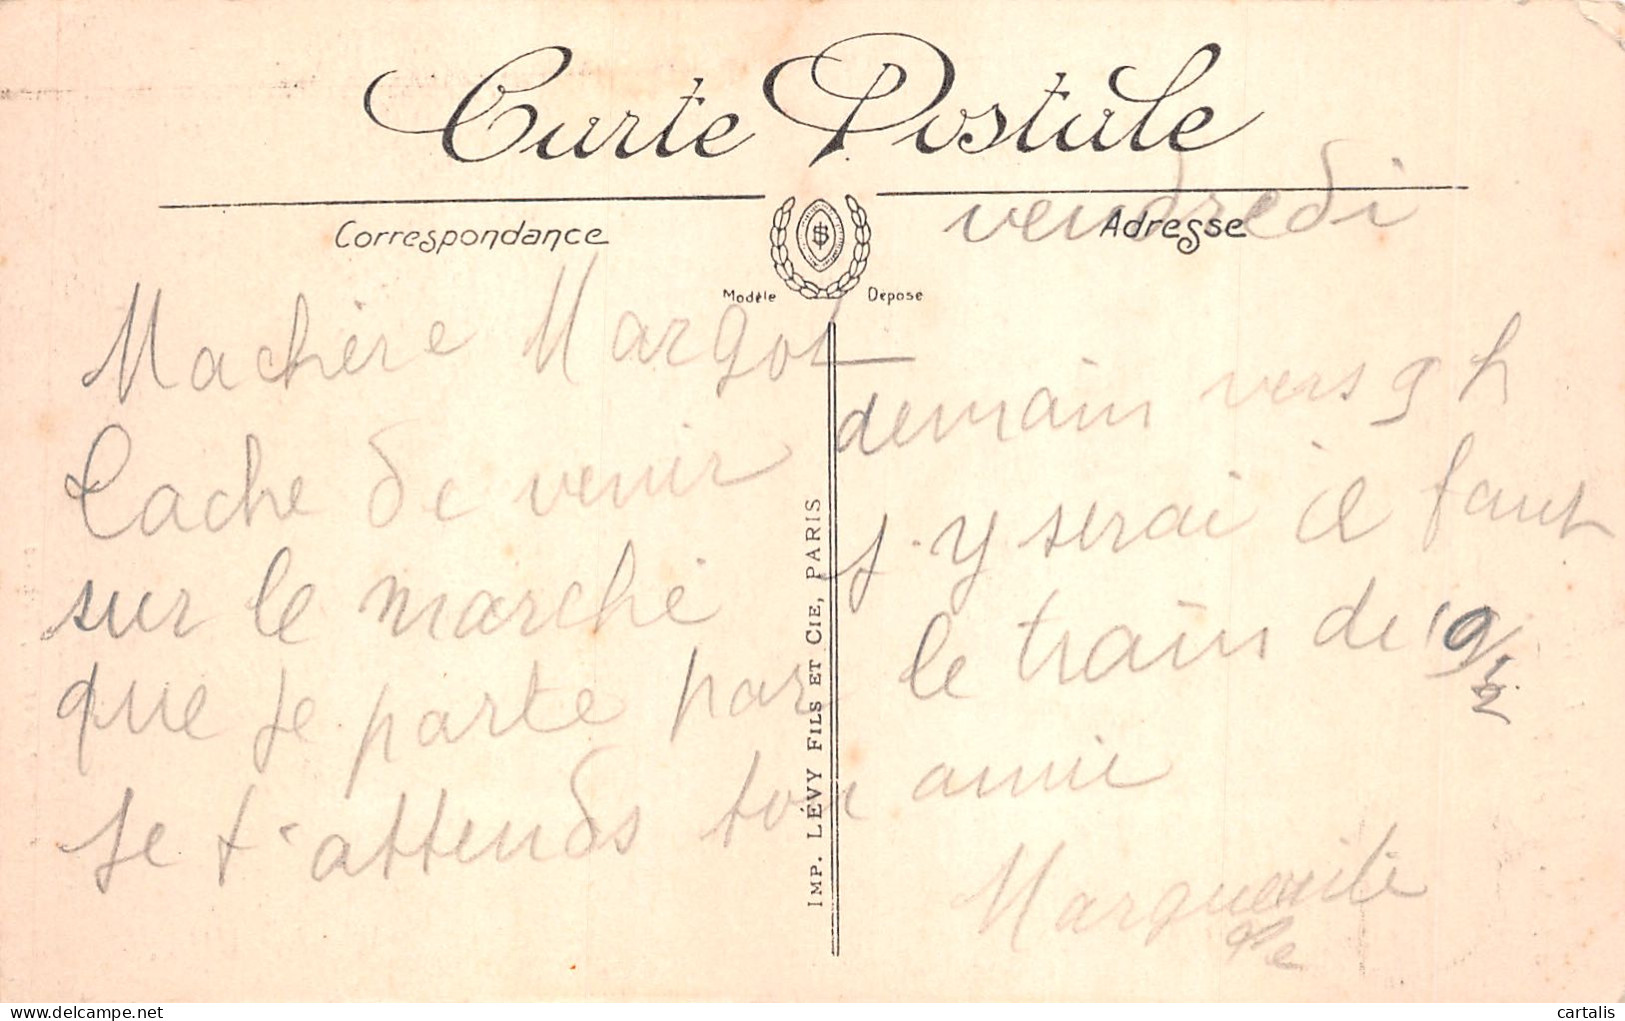 Carte Postale
Correspondance
Adresse
Modèle Déposé
vendredi
Ma chère Margot
Tache de venir demain vers 9 h
sur le marché j'y serai il faut
que je parte par le train de 9 1/2
je t'attends ton amie
Marguerite
IMP. LÉVY FILS ET CIE, PARIS
delcampe.net
cartalis